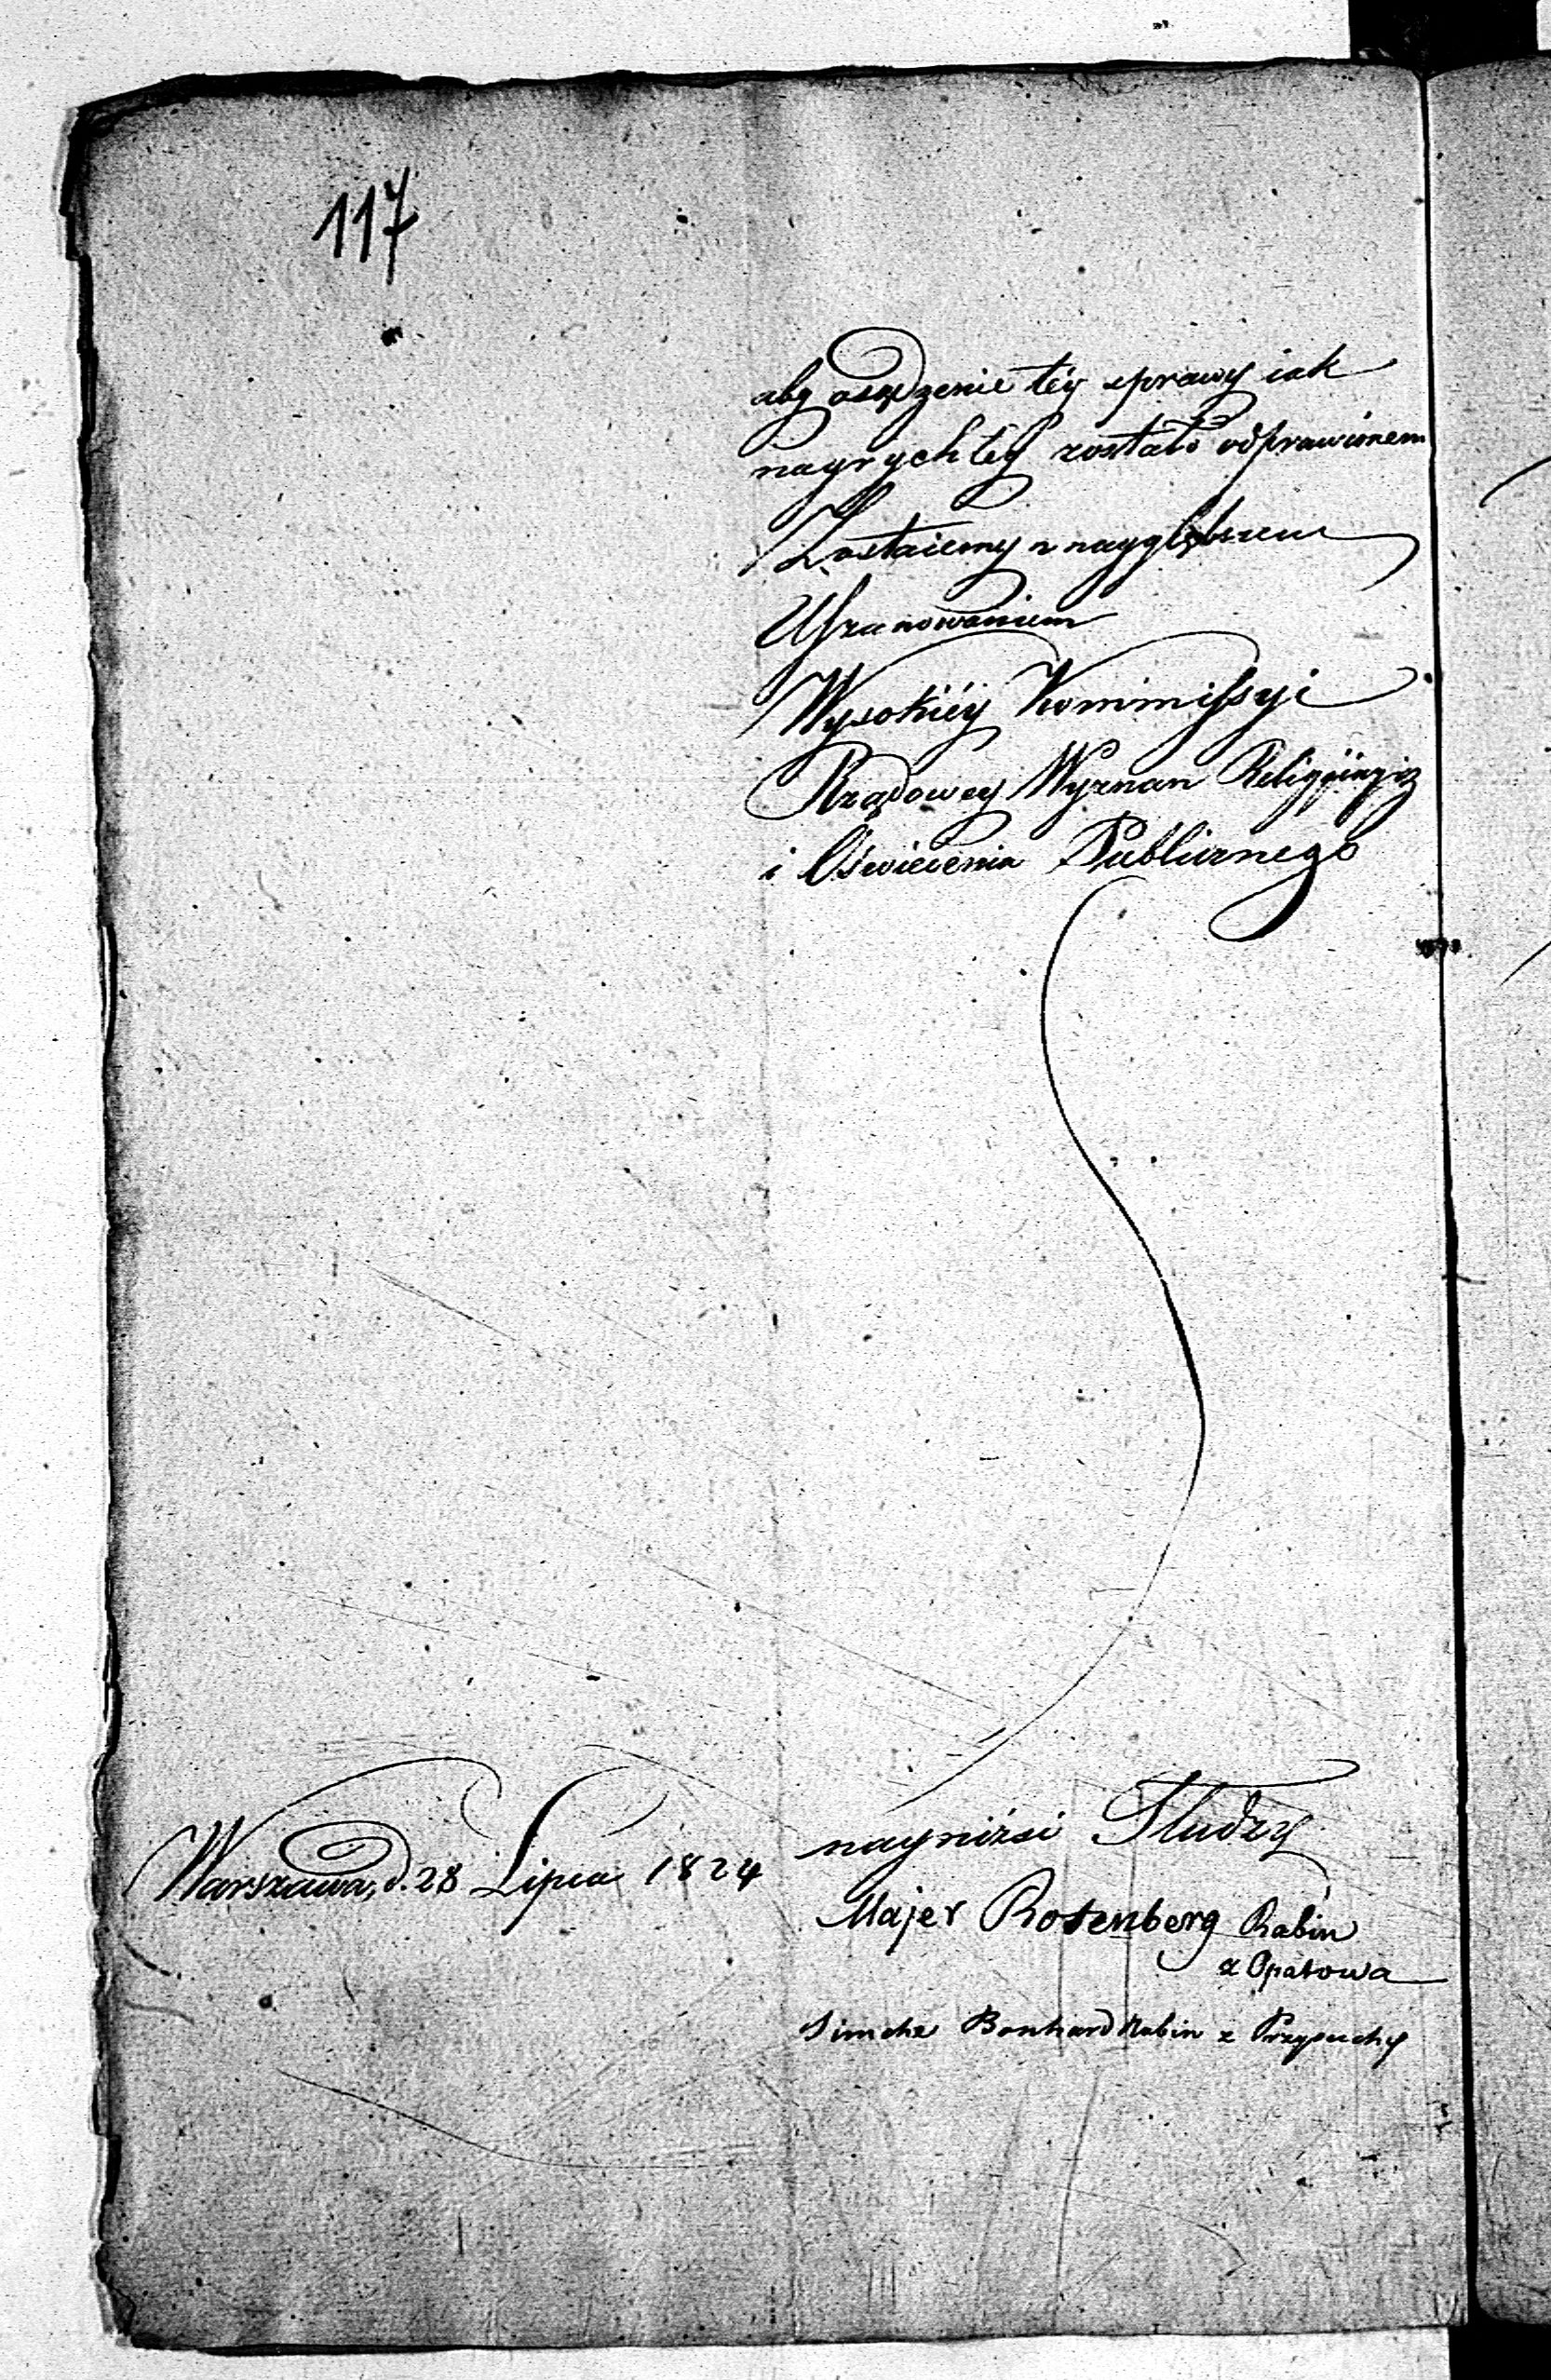 117
aby osądzenie téy sprawy iak
nayrychléy zostało odprawionem
Zostaiemy z naygłębszem
Uszanowaniem
Wysokiéy Kommissyi
Rządowey Wyznan
i Oświecenia Publicznego
Warszawa, d. 28 Lipca 1824
naynizsi Słudzy
Majer Rotenberg Rabin
z Opatowa
Simche Bonhard Rabin z Przysuchy